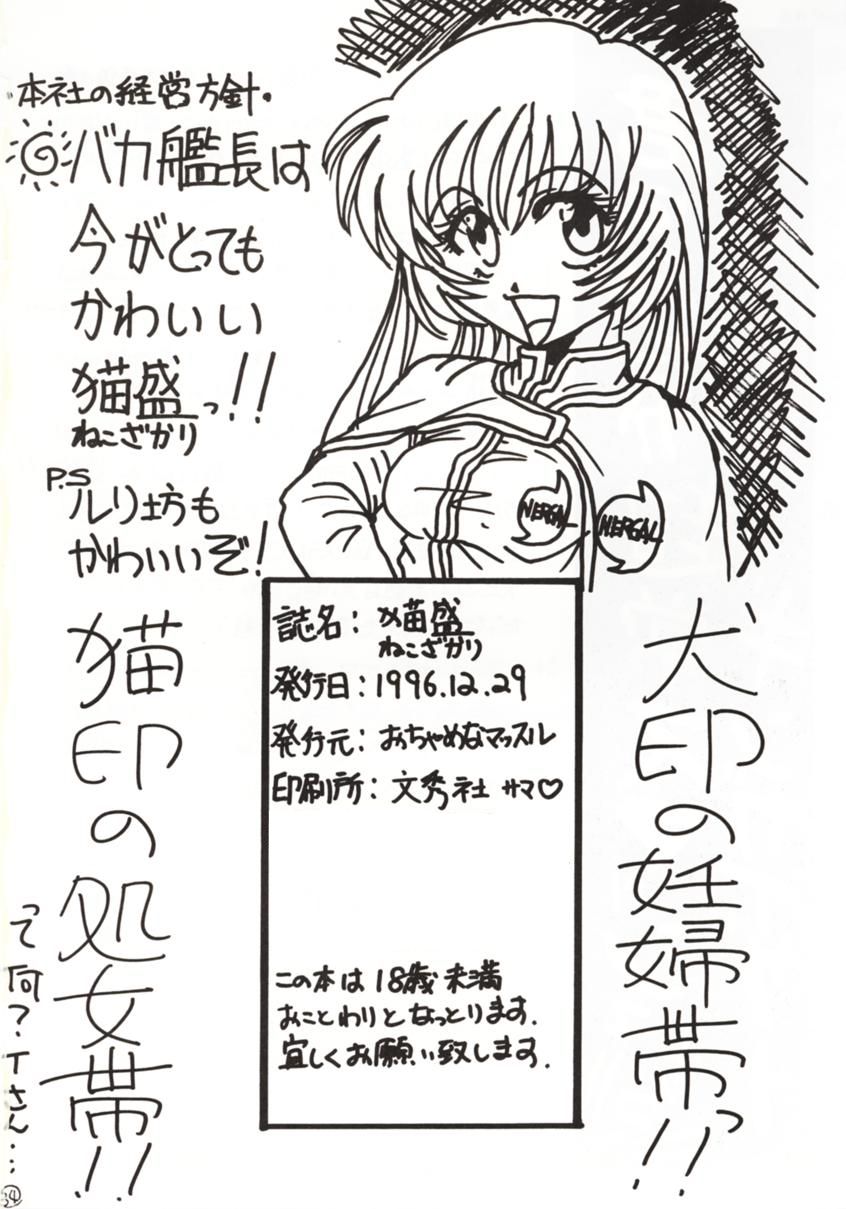 本社の経営方針・
バカ艦長は
今がとっても
かわいい
猫盛っ!!
ねこざかり
P.S
ルリ坊も
かわいいぞ!
NERGAL
NERGAL
誌名：猫盛
ねこざかり
発行日：1996.12.29
発行元：おっちゃめなマッスル
印刷所：文秀社 サマ♡
この本は18歳未満
おことわりとなっとります.
宜しくお願い致します.
犬印の妊婦帯っ!!
猫印の処女帯!!
って何?Tさん…
34